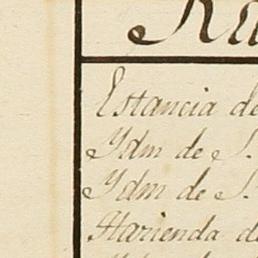 Estancia de
Ydm de S.
Ydm de S.
Harienda de